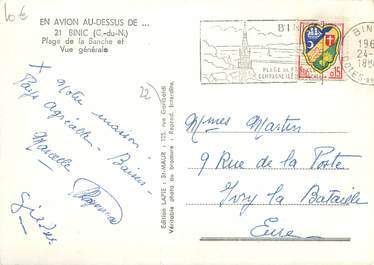 10€
EN AVION AU-DESSUS DE ...
21 BINIC (C.-du-N.)
Plage de la Banche et
Vue générale
22
+ Notre maison
Pays agréable. Baisers
Marcelle
Edition LAPIE : St-MAUR : 125, rue Garibaldi
Véritable photo au bromure : Reprod. Interdite.
BINIC
PLAGE
CAMPAGNE
0,15
BINIC
196
24-
18
CÔTES-
Mmes Martin
9 Rue de la Poste
Ivry la Bataille
Eure